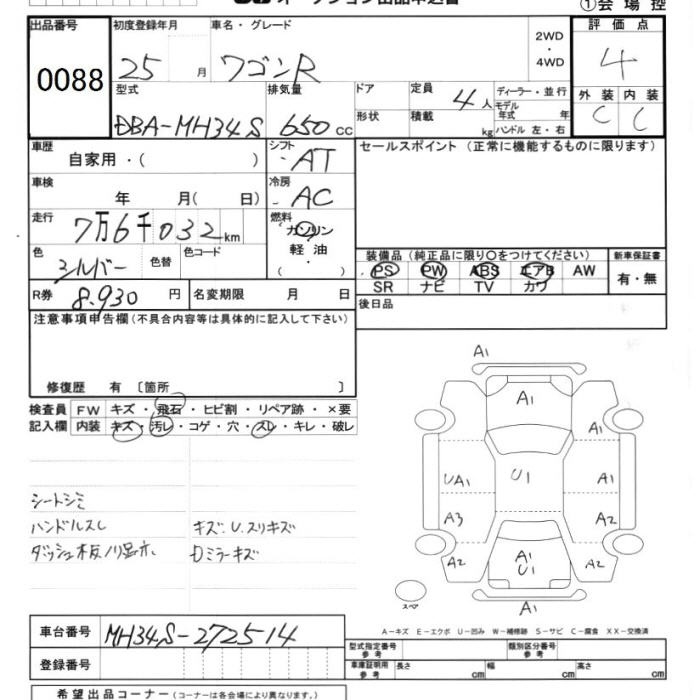 ①会場控
出品番号 初度登録年月 車名・グレード 評価点
0088 25 月 ワゴンR 2WD・4WD 4
型式 排気量 ドア 定員 ディーラー・並行 外装 内装
DBA-MH34S 650 cc 形状 積載 4人 kg モデル年式 年 ハンドル 左・右 C C
車歴 自家用・( ) シフト AT セールスポイント (正常に機能するものに限ります)
車検 年 月( 日) 冷房 AC
走行 7万6千032km 燃料 ガソリン
色 シルバー 色替 色コード 軽油 ・( )
装備品 (純正品に限り○をつけてください) 新車保証書
PS PW ABS エアB AW 有・無
SR ナビ TV カワ
R券 8.930 円 名変期限 月 日 後日品
注意事項申告欄(不具合内容等は具体的に記入して下さい)
修復歴 有 〔箇所 〕
検査員 FW キズ・飛石・ヒビ割・リペア跡・×要
記入欄 内装 キズ・汚レ・コゲ・穴・スレ・キレ・破レ
シートシミ
ハンドルスレ キズ、U、スリキズ
Dミラーキズ
A1
A1
UA1 U1 A1
A3 A2
A2 A1 U1 A2
スペア
A-キズ E-エクボ U-凹み W-補修跡 S-サビ C-腐食 XX-交換済
車台番号 MH34S-272514
型式指定番号 参考 類別区分番号 参考
登録番号 車庫証明用 参考 長さ cm 幅 cm 高さ cm
希望出品コーナー (コーナーは各会場により異なります。)